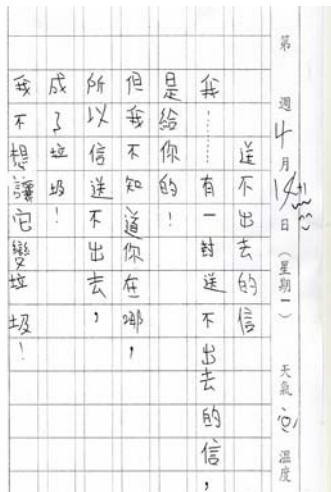 第 週 4 月 14 日 (星期一) 天氣 溫度
送不出去的信
我………有一封送不出去的信,
是給你的!
但我不知道你在哪,
所以信送不出去,
成了垃圾!
我不想讓它變垃圾!